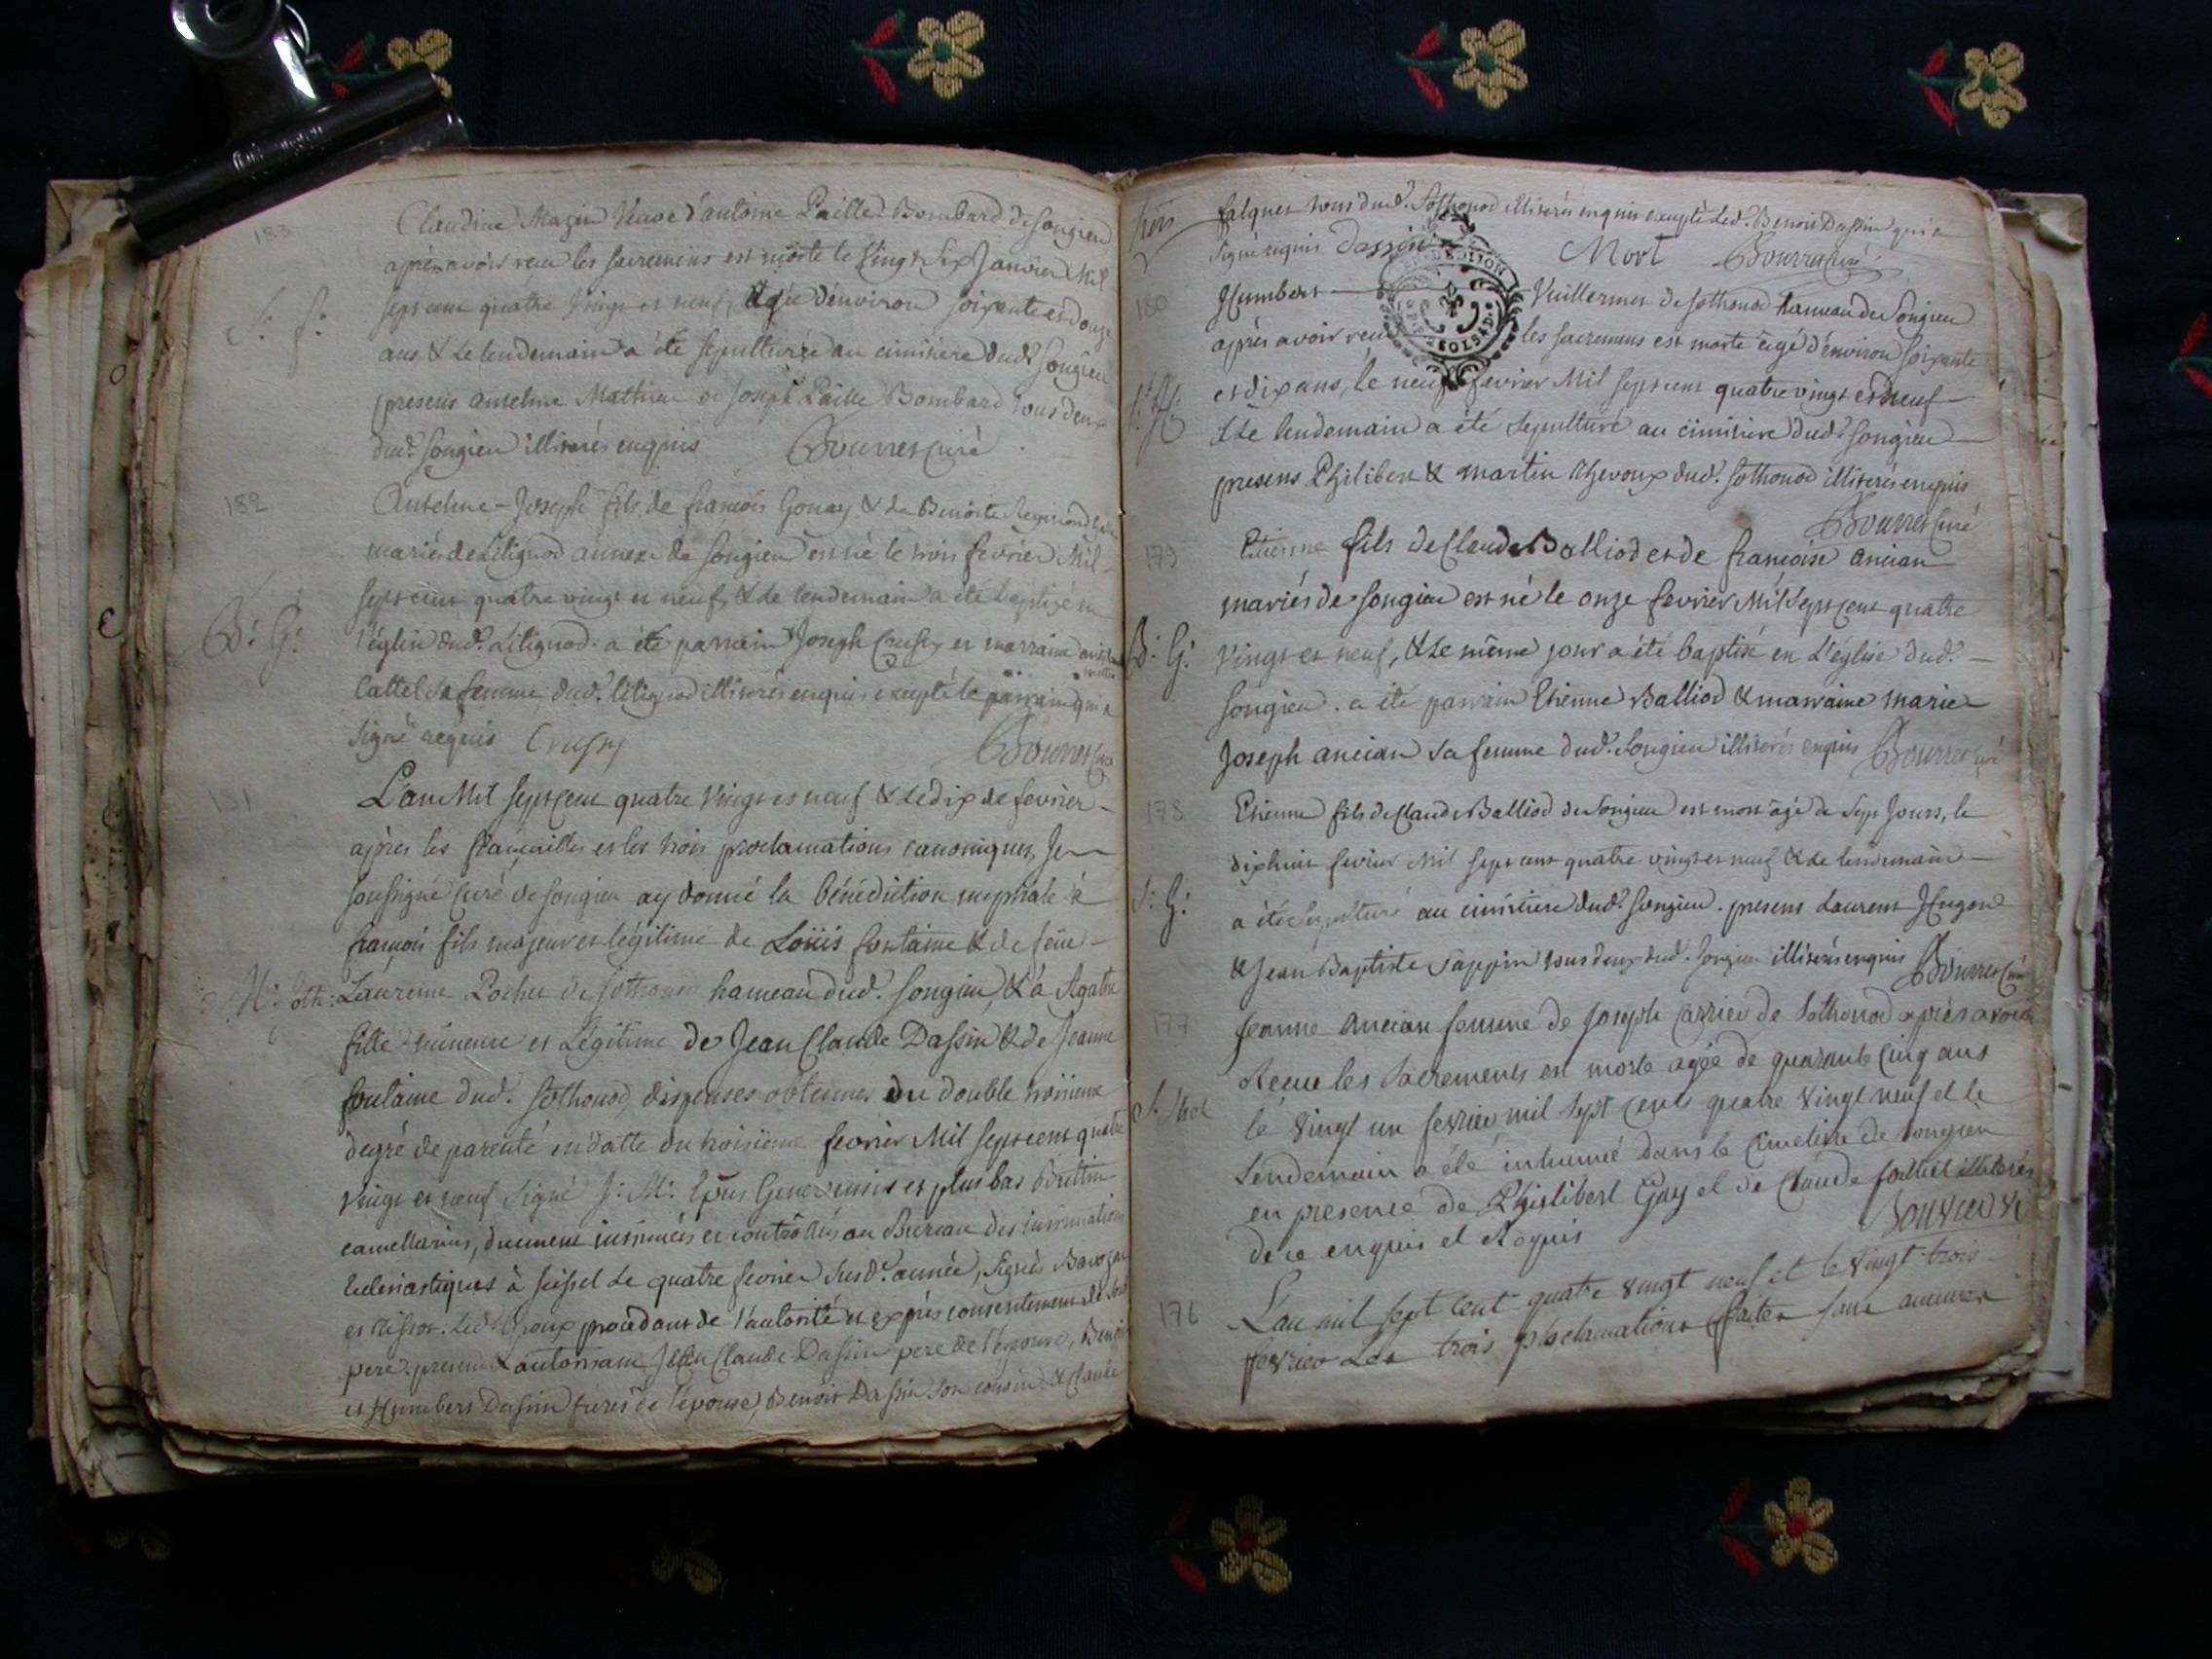 183
Claudine Mazin Veuve d'antoine Paille Bombard de Songieu
après avoir reçu les sacremens est morte le vingt six Janvier Mil
sept cent quatre vingt et neuf, âgée d'environ soixante et douze
S: f:
ans & le lendemain a été sepulturée au cimitiere dud. Songieu
presens anselme Mathieu et Joseph Paille Bombard tous deux
dud. Songieu illiterés enquis Bourret curé
182
Anselme-Joseph fils de françois Gonay & de Benoite Reymond
mariés de Litignod annexe de Songieu est né le trois fevrier Mil
sept cent quatre vingt et neuf, & le lendemain a été baptizé en
B: G:
l'église dud. Litignod. a été parrain Joseph Crussy et marraine
Cattel sa femme, dud. litignod illiterés enquis excepté le parrain qui a
signé requis Crussy
Bourret curé
181
L'an Mil sept cent quatre vingt et neuf & le dix de fevrier
après les fiançailles et les trois proclamations canoniques, Je
soussigné curé de Songieu ay donné la bénédiction nuptiale à
françois fils majeur et légitime de Loüis fontaine & de feüe
M: Soth: Laurence Pochet de Sothonod hameau dud. Songieu, & à Agathe
fille mineure et Légitime de Jean Claude Dassin & de Jeanne
fontaine dud. Sothonod, dispenses obtenues du double troisieme
degré de parenté en datte du troisieme fevrier Mil sept cent quatre
vingt et neuf signé J: M: Epus Genevensis et plus bas Brettin
cancellarius, duement insinuées et controllées au Bureau des insinuations
Eclesiastiques à Seissel le quatre fevrier susd. année, signés
et Tissot. led. Epoux procedant de l'autorité et exprès consentement de son
pere. present & autorisant Jean Claude Dassin pere de l'epouse, Benoit
et Humbert Dassin freres de l'épouse, Benoit Dassin son cousin & Claude
falquet tous dud. Sothonod illiterés enquis excepté led. Benoit Dassin qui a
signé requis Dassin Mort Bourret curé
180
Humbert Vuillermet de Sothonod hameau de Songieu
après avoir reçu les sacremens est morte âgé d'environ soixante
et dix ans, le neuf fevrier Mil sept cent quatre vingt et neuf
& le lendemain a été sepulturé au cimitiere dud. Songieu
presens Philibert & martin Thevoux dud. Sothonod illiterés enquis
Bourret curé
179
Etienne fils de Claude Balliod et de françoise ancian
mariés de Songieu est né le onze fevrier Mil sept cent quatre
B: G: vingt et neuf, & le même jour a été baptisé en L'église dud.
Songieu. a été parrain Etienne Balliod & marraine marie
Joseph ancian sa femme dud. Songieu illiterés enquis Bourret curé
178
Etienne fils de Claude Balliod de Songieu est mort âgé de Sept Jours, le
dixhuit fevrier Mil sept cent quatre vingt et neuf & le lendemain
S: G:
a été sepulturé au cimitiere dud. Songieu. presens Laurent Hugon
& Jean Baptiste Sappin tous deux dud. Songieu illiterés enquis Bourret curé
177
jeanne Ancian femme de joseph Carrier de Sothonod après avoir
Reçue les Sacrements est morte agée de quarante Cinq ans
le vingt un fevrier mil sept cents quatre vingt neuf et le
lendemain a été inhumé dans le Cimetiere de Songieu
en presence de Philibert Gay et de Claude illiterés
de ce enquis et Requis
176
L'an mil sept cent quatre vingt neuf et le vingt trois
fevrier Les trois proclamations faites sans aucunes